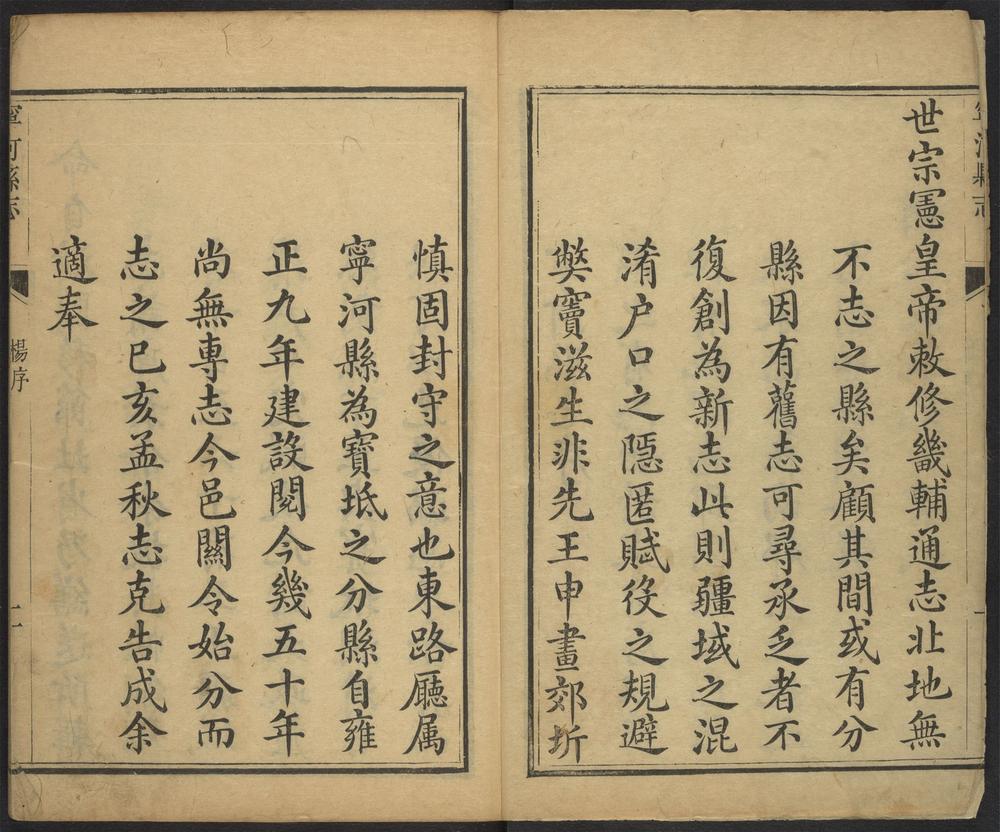 世宗憲皇帝敕修畿輔通志北地無
不志之縣矣顧其間或有分
縣因有舊志可尋承乏者不
復創為新志此則疆域之混
淆户口之隱匿賦役之規避
獘竇滋生非先王申畫郊圻
慎固封守之意也東路廳属
寧河縣為寶坻之分縣自雍
正九年建設閱今幾五十年
尚無專志今邑關令始分而
志之已亥孟秋志克告成余
適奉
寧河縣志
楊序
二